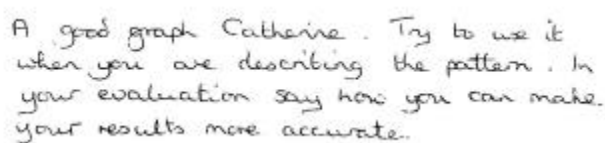 A good graph Catherine. Try to use it
when you are describing the pattern. In
your evaluation say how you can make
your results more accurate.